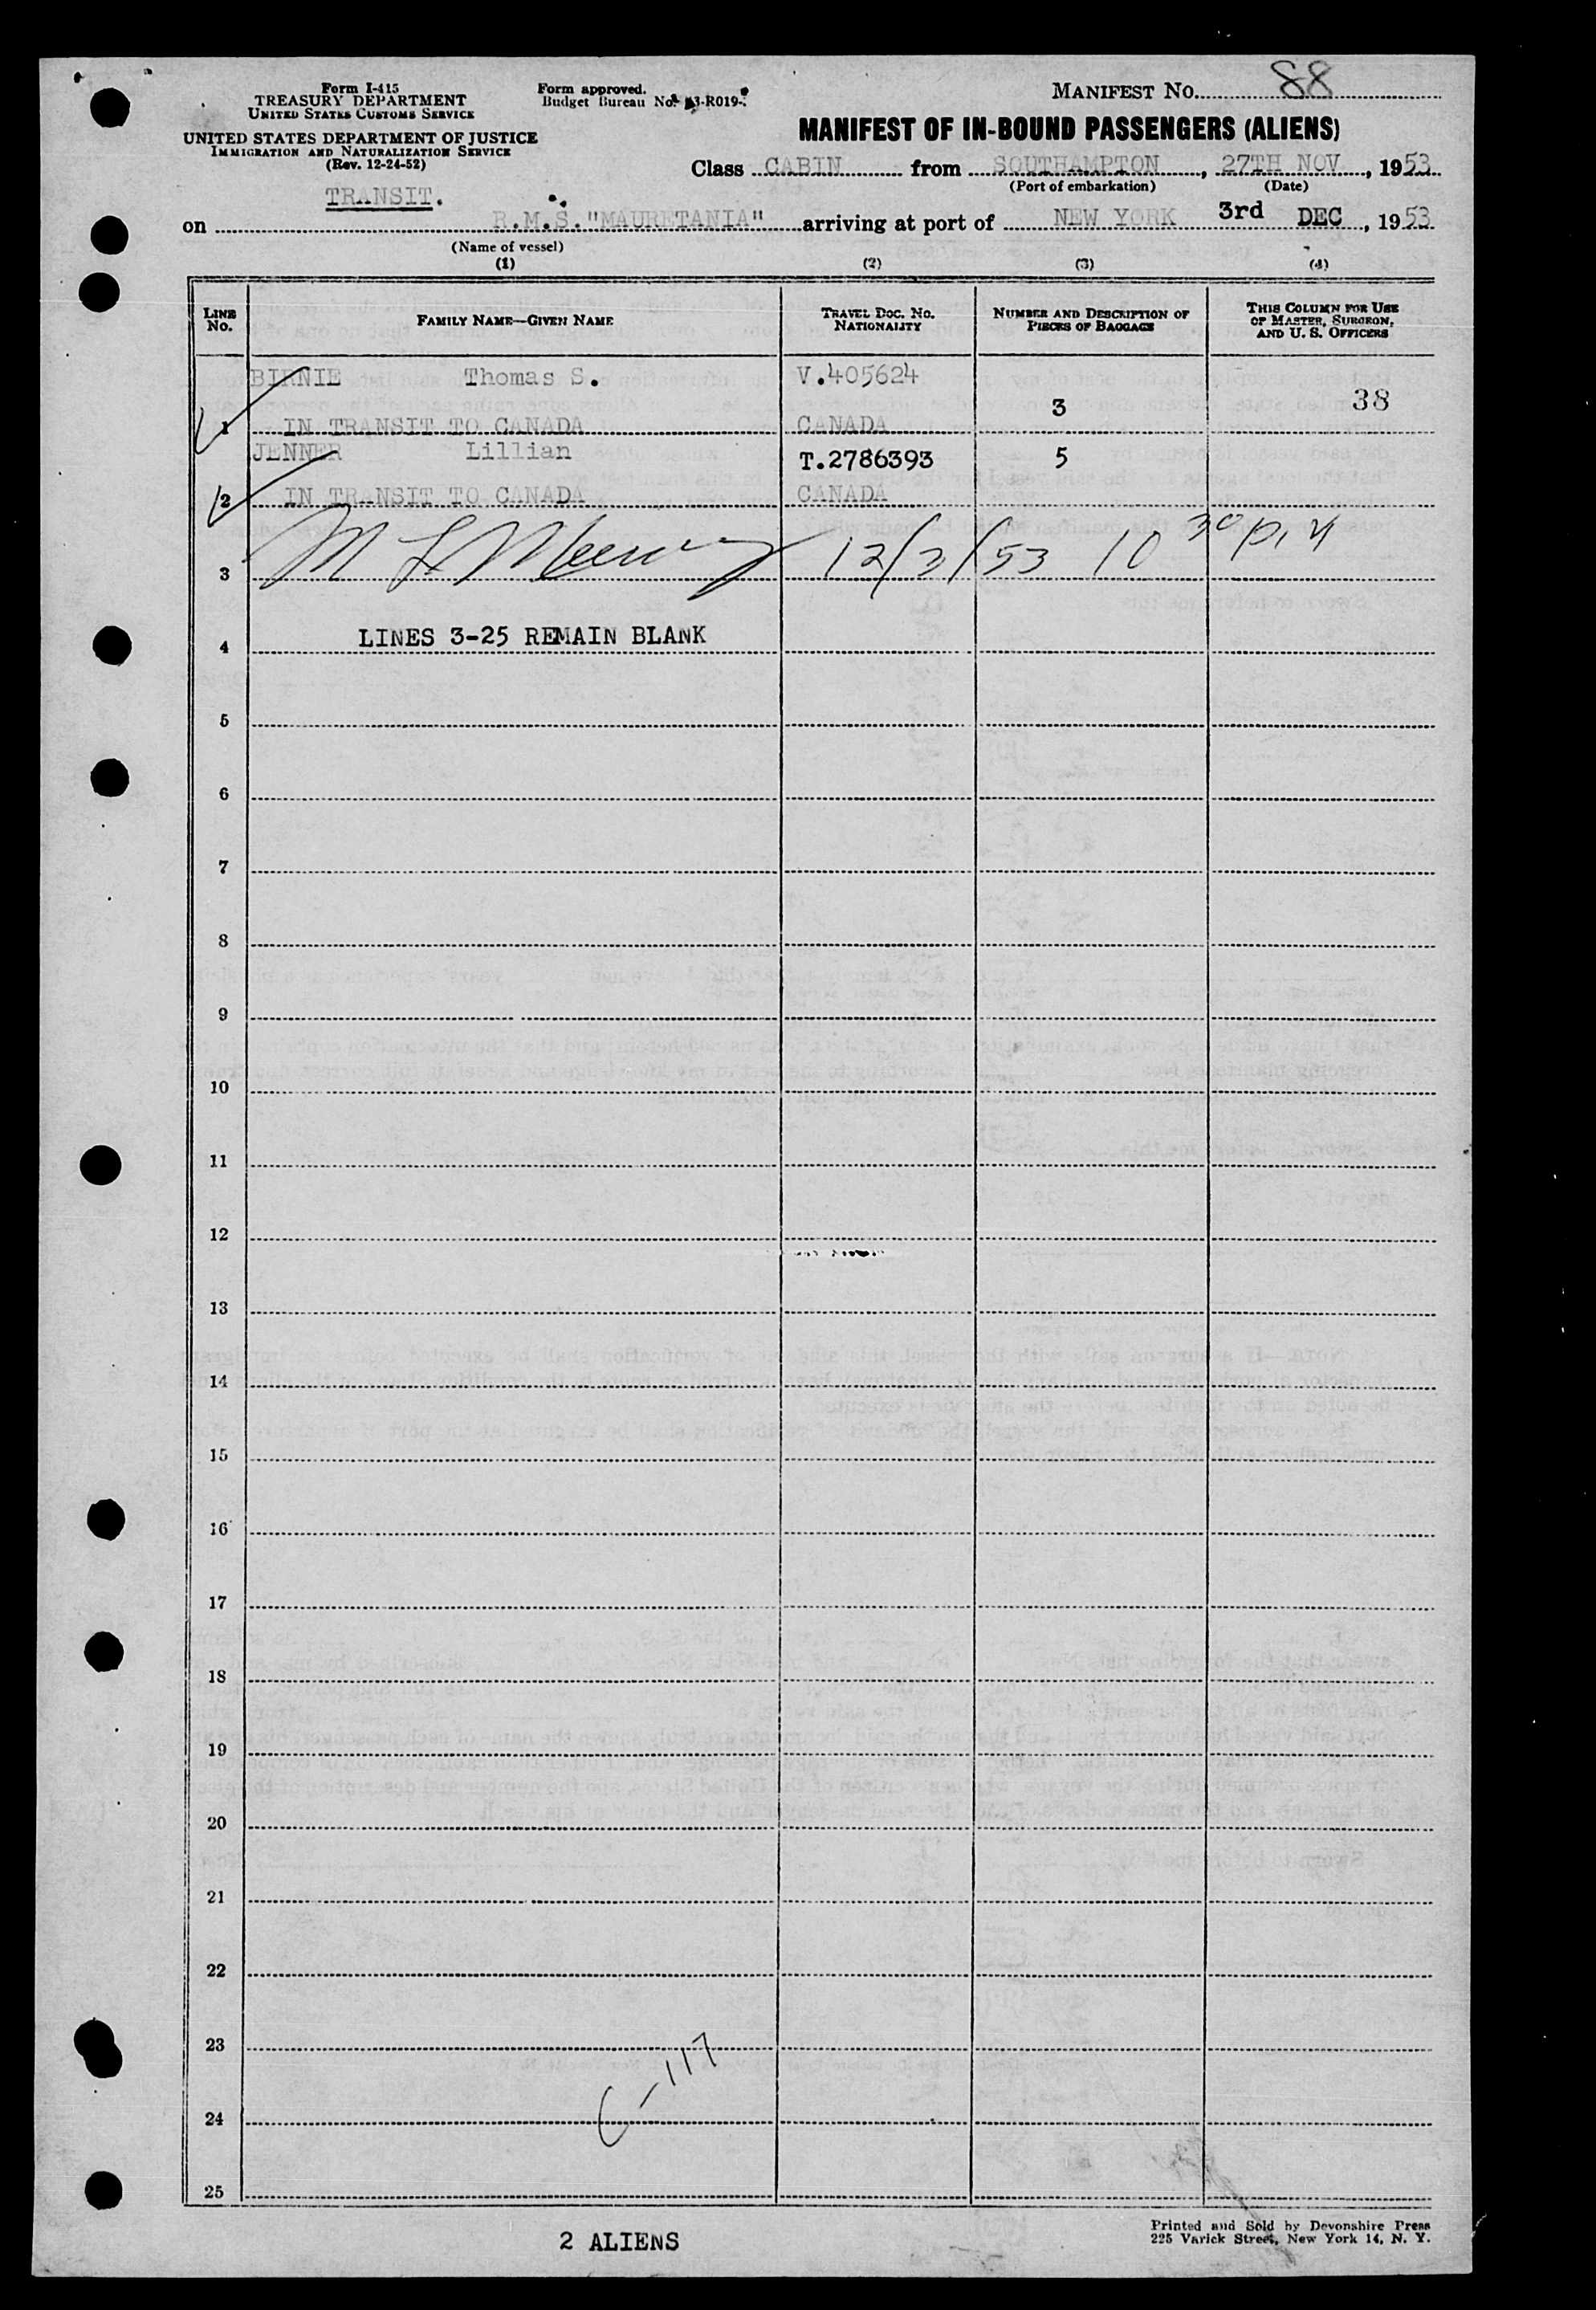 Form I-415
TREASURY DEPARTMENT
UNITED STATES CUSTOMS SERVICE
UNITED STATES DEPARTMENT OF JUSTICE
IMMIGRATION AND NATURALIZATION SERVICE
(Rev. 12-24-52)
Form approved.
Budget Bureau No. 43-R019-
MANIFEST NO. 88
MANIFEST OF IN-BOUND PASSENGERS (ALIENS)
Class CABIN from SOUTHAMPTON, 27TH NOV, 1953
(Port of embarkation) (Date)
TRANSIT.
on R.M.S. "MAURETANIA" arriving at port of NEW YORK 3rd DEC, 1953
(Name of vessel)
(1) (2) (3) (4)
LINE NO. FAMILY NAME—GIVEN NAME TRAVEL DOC. NO. NATIONALITY NUMBER AND DESCRIPTION OF PIECES OF BAGGAGE THIS COLUMN FOR USE OF MASTER, SURGEON, AND U. S. OFFICERS
BIRNIE Thomas S. V.405624
1 IN TRANSIT TO CANADA CANADA 3 38
JENNER Lillian T.2786393 5
2 IN TRANSIT TO CANADA CANADA
3 M L 12/3/53 10 30 P.M
4 LINES 3-25 REMAIN BLANK
5
6
7
8
9
10
11
12
13
14
15
16
17
18
19
20
21
22
23
24
C-117
25
2 ALIENS
Printed and Sold by Devonshire Press
225 Varick Street, New York 14, N. Y.